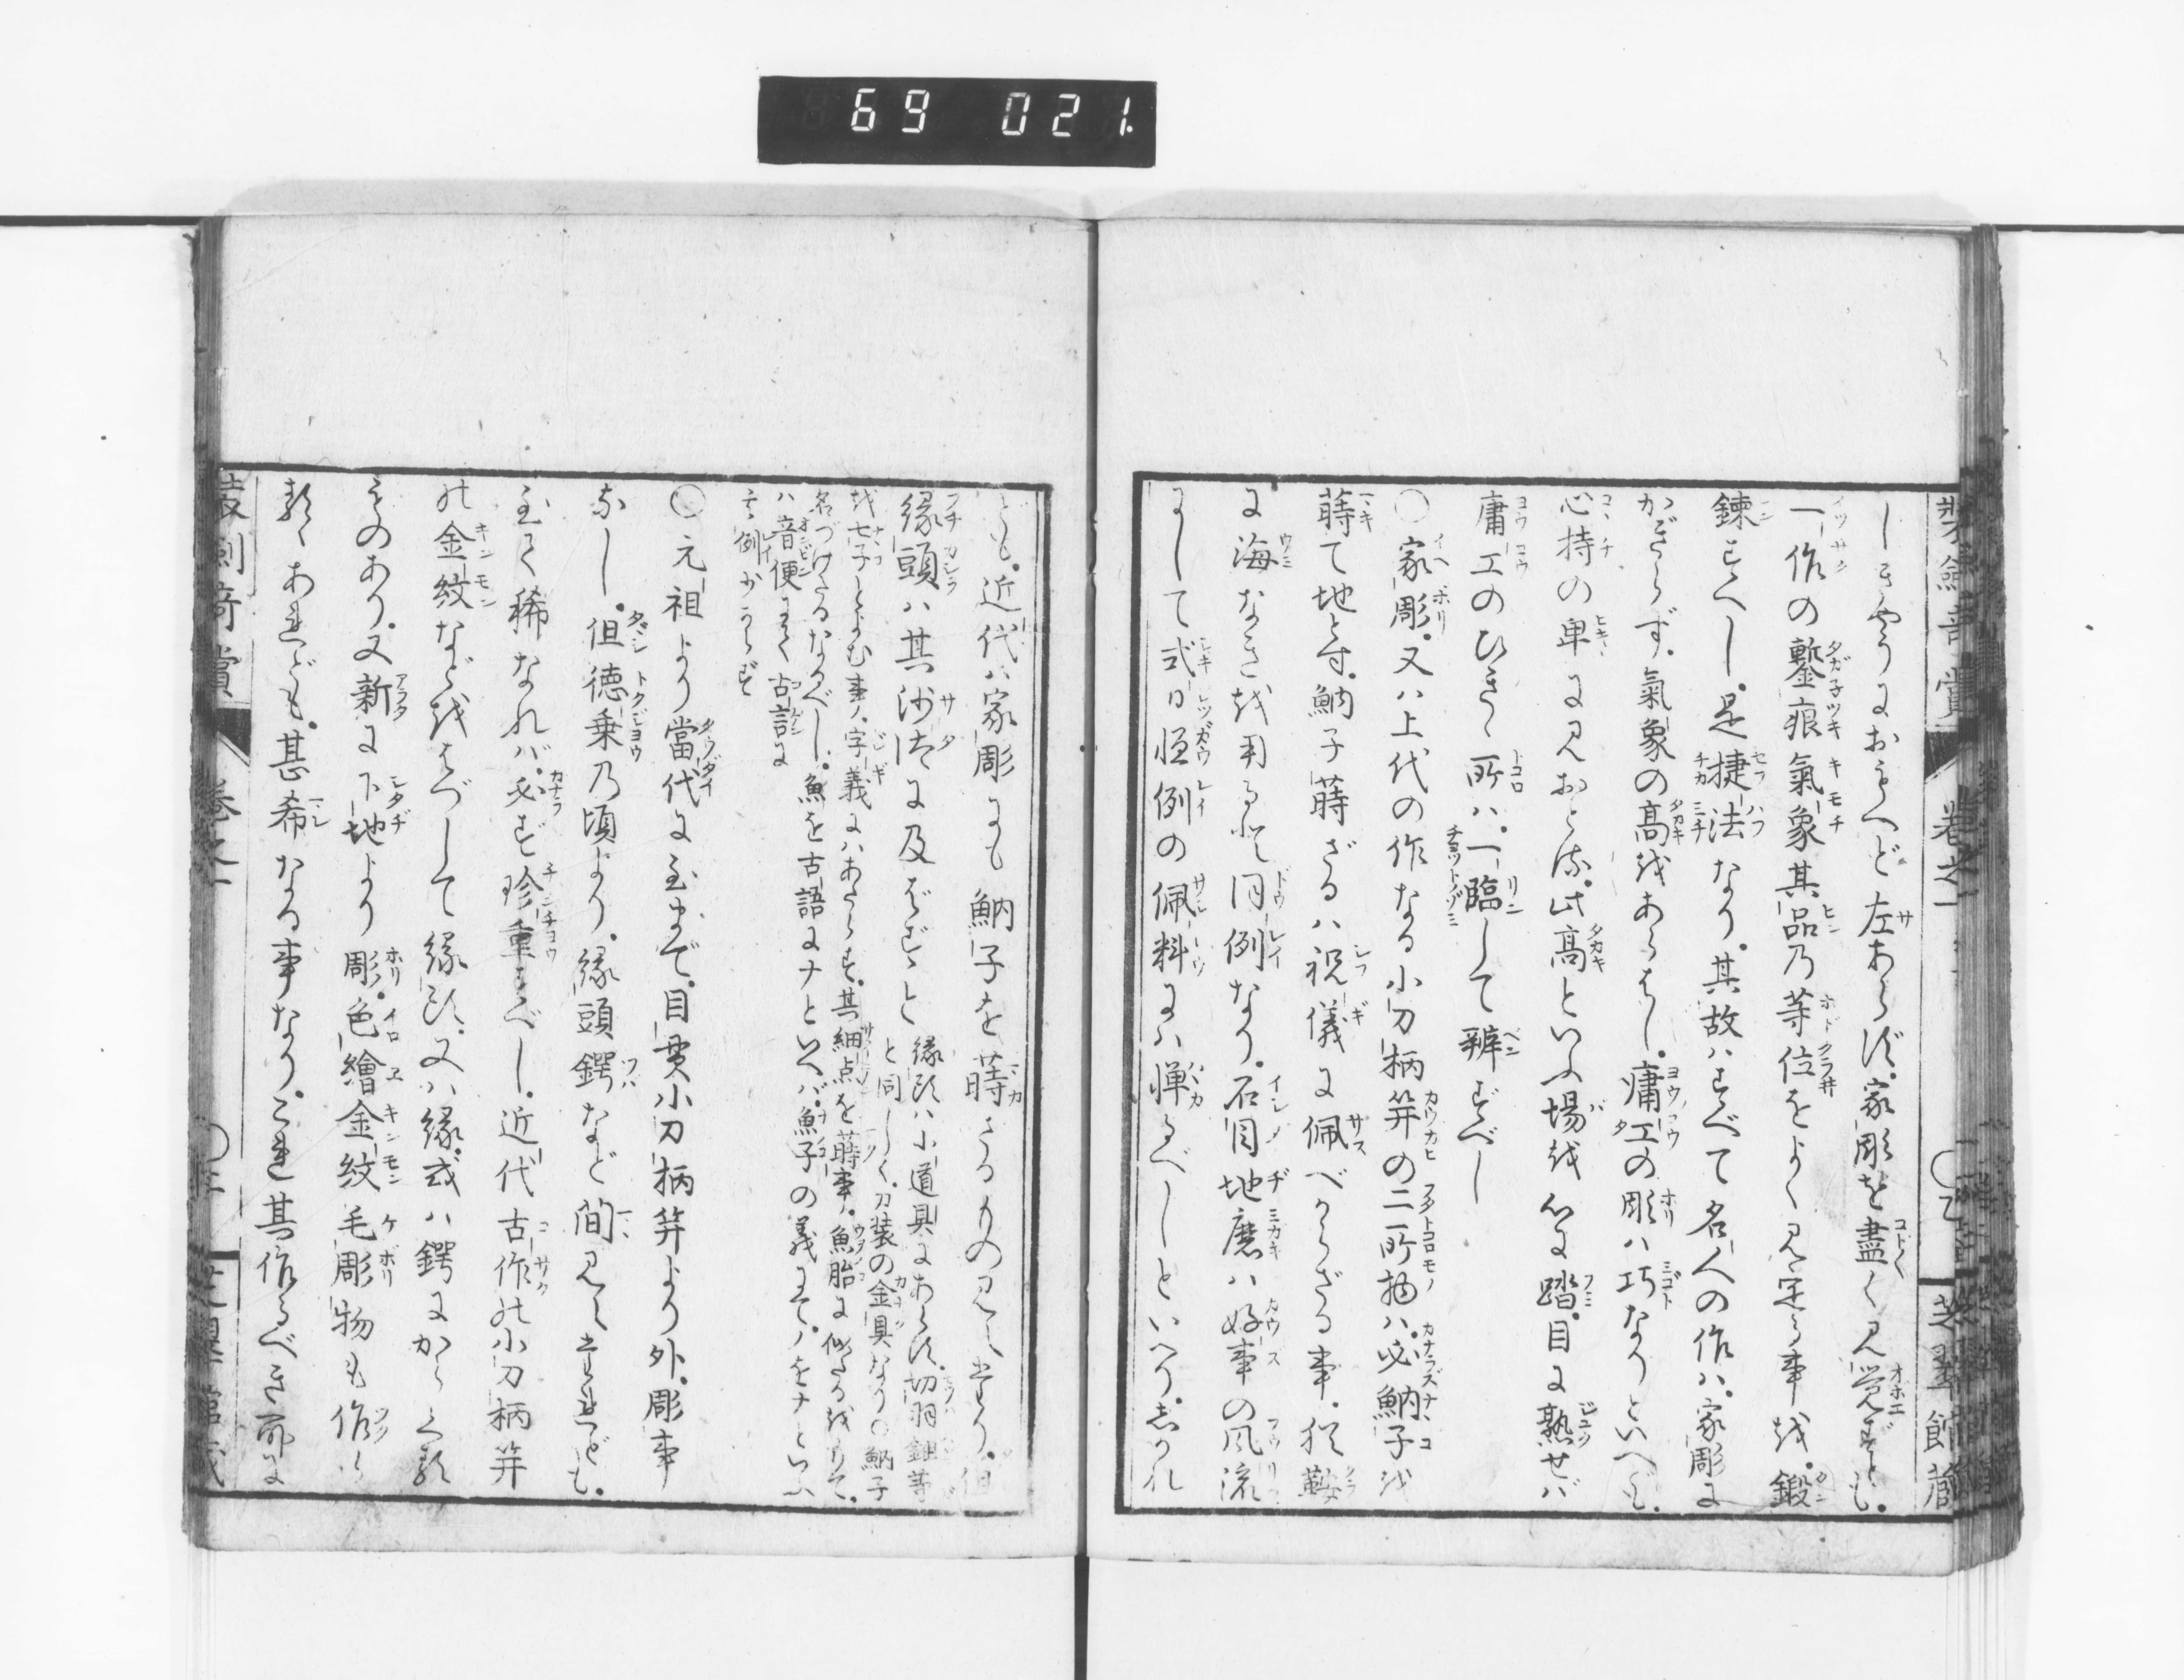 69 021.
しきやうにおもへど左あらず。家彫を盡く見覚ずとも。
一作の鏨痕氣象其品乃等位をよく見定る事を。鍛
錬すべし。是捷法なり。其故はすべて名人の作は。家彫に
かぎらず。氣象の高をあらはし。庸工の彫は巧なりといへども。
心持の卑に見おとす。此高といふ場を心に踏。目に熟せば
庸工のひきゝ所は。一臨して辨ずべし
○家彫。又ハ上代の作なる小刀柄笄の二所物ハ。必魶子を
蒔て地とす。魶子蒔ざるハ祝儀に佩べからざる事。猶鞍
に海なきを用るに同例なり。石目地磨ハ好事の風流
にして式日恒例の佩料にハ憚るべしといへり。しかれ
ども。近代ハ家彫にも魶子を蒔ざるもの見えたり。但
縁頭ハ其沙汰に及ばずと
縁頭ハ小道具にあらず。切羽鎺等
と同しく。刀装の金具なり○魶子
を七子とよむ事ハ。字義にハあたらず。其細点を蒔事ハ。魚胎に似たるをもて。
名づけたるなるべし。魚を古語にナといへバ。魚子の義にて。ノをナといふ
ハ音便にて古言に
其例少からず
○元祖より當代に至まで。目貫小刀柄笄より外。彫事
なし。但徳乗乃頃より。縁頭鍔など間見えたれども。
至て稀なれバ。必ず珍重すべし。近代古作の小刀柄笄
の金紋などをはづして縁頭。又ハ縁。或ハ鍔にからくり
ものあり。又新に下地より彫。色繪金紋毛彫物も作
類あれども。甚希なる事なり。これ其作るべき所に
裝劍奇賞
卷之一
芝翠館藏